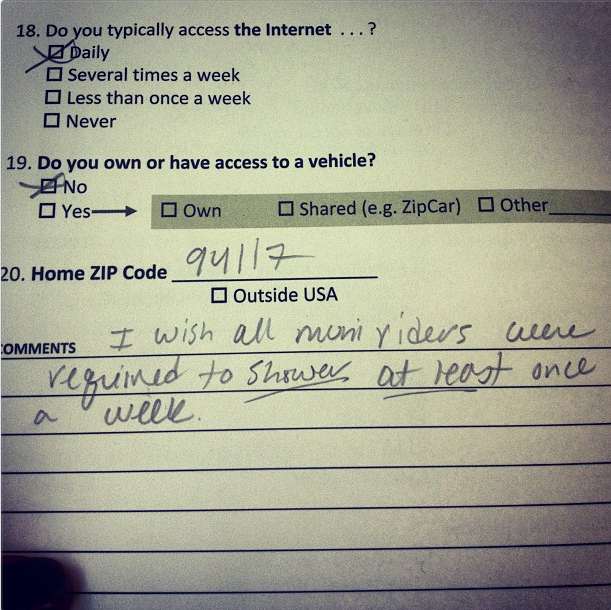 18. Do you typically access the Internet ...?
Daily
Several times a week
Less than once a week
Never
19. Do you own or have access to a vehicle?
No
Yes Own Shared (e.g. ZipCar) Other
20. Home ZIP Code 94117
Outside USA
OMMENTS I wish all muni riders were
required to shower at least once
a week.